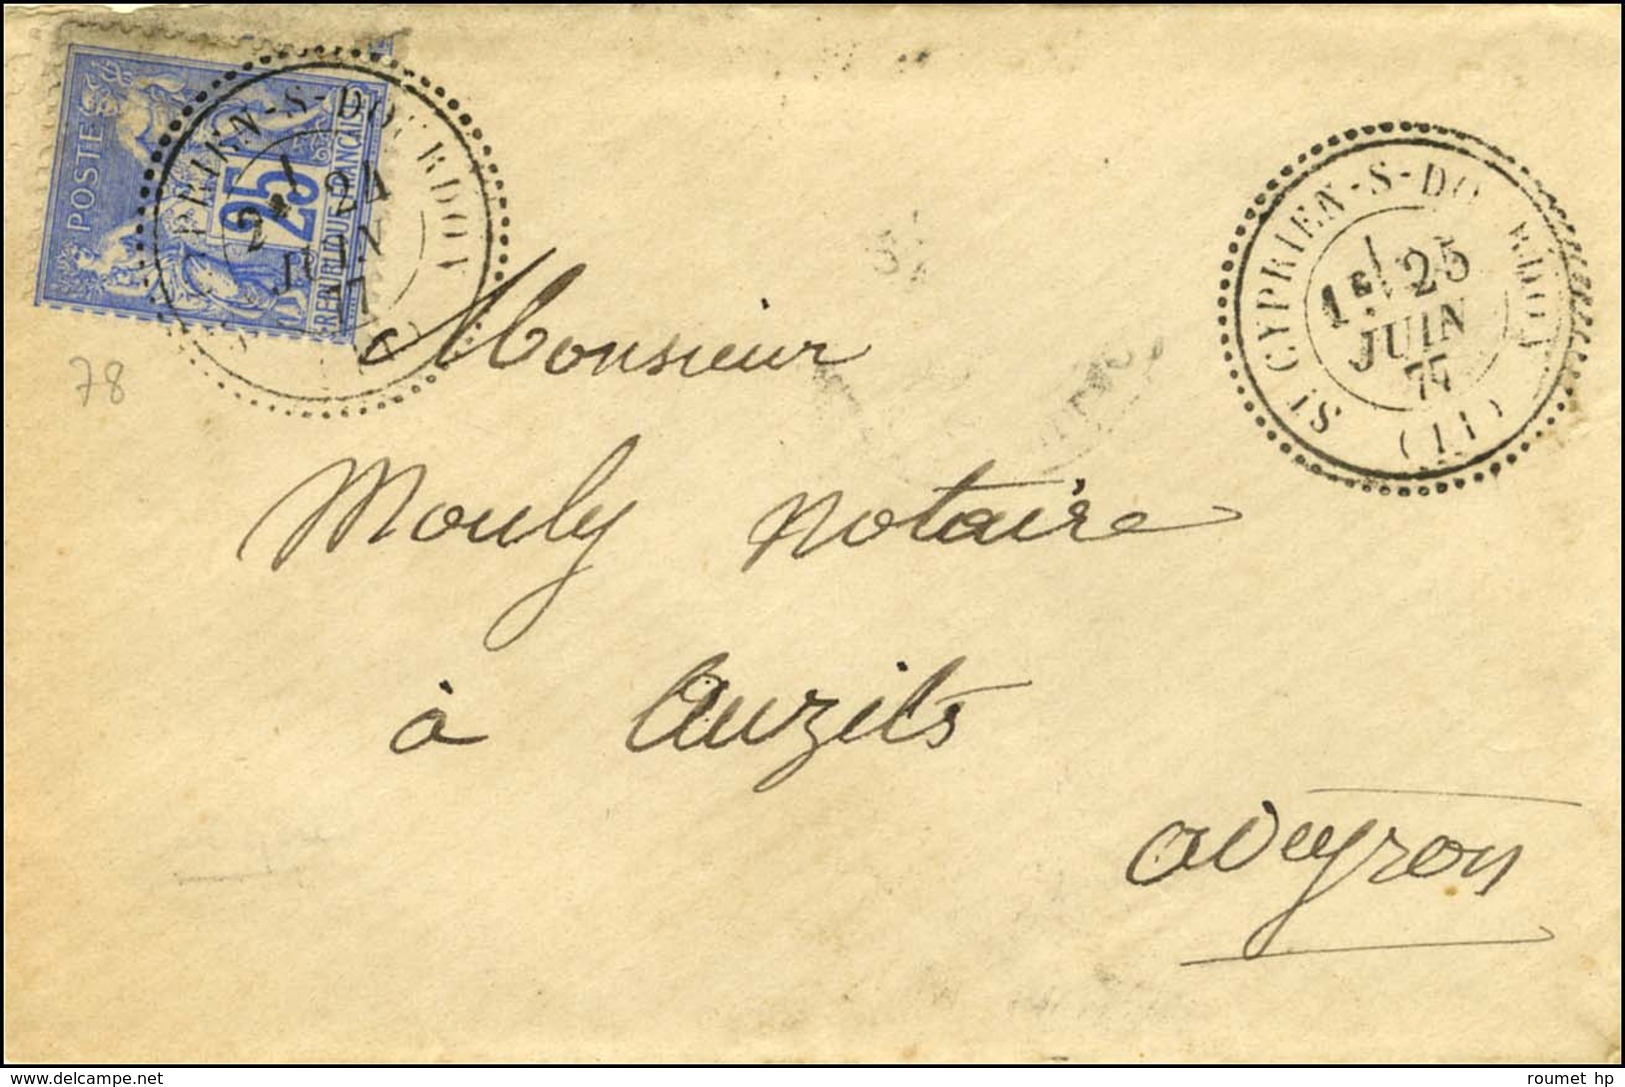 POSTES
25
25
REPUBLIQUE FRANCAISE
PRIEN-S-DOURDOU
2E 24
JUIN
77
ST CYPRIEN-S-DOURDOU
1E 25
JUIN
77
(11)
78
Monsieur
Mouly notaire
à Auzits
aveyron
roumet hp